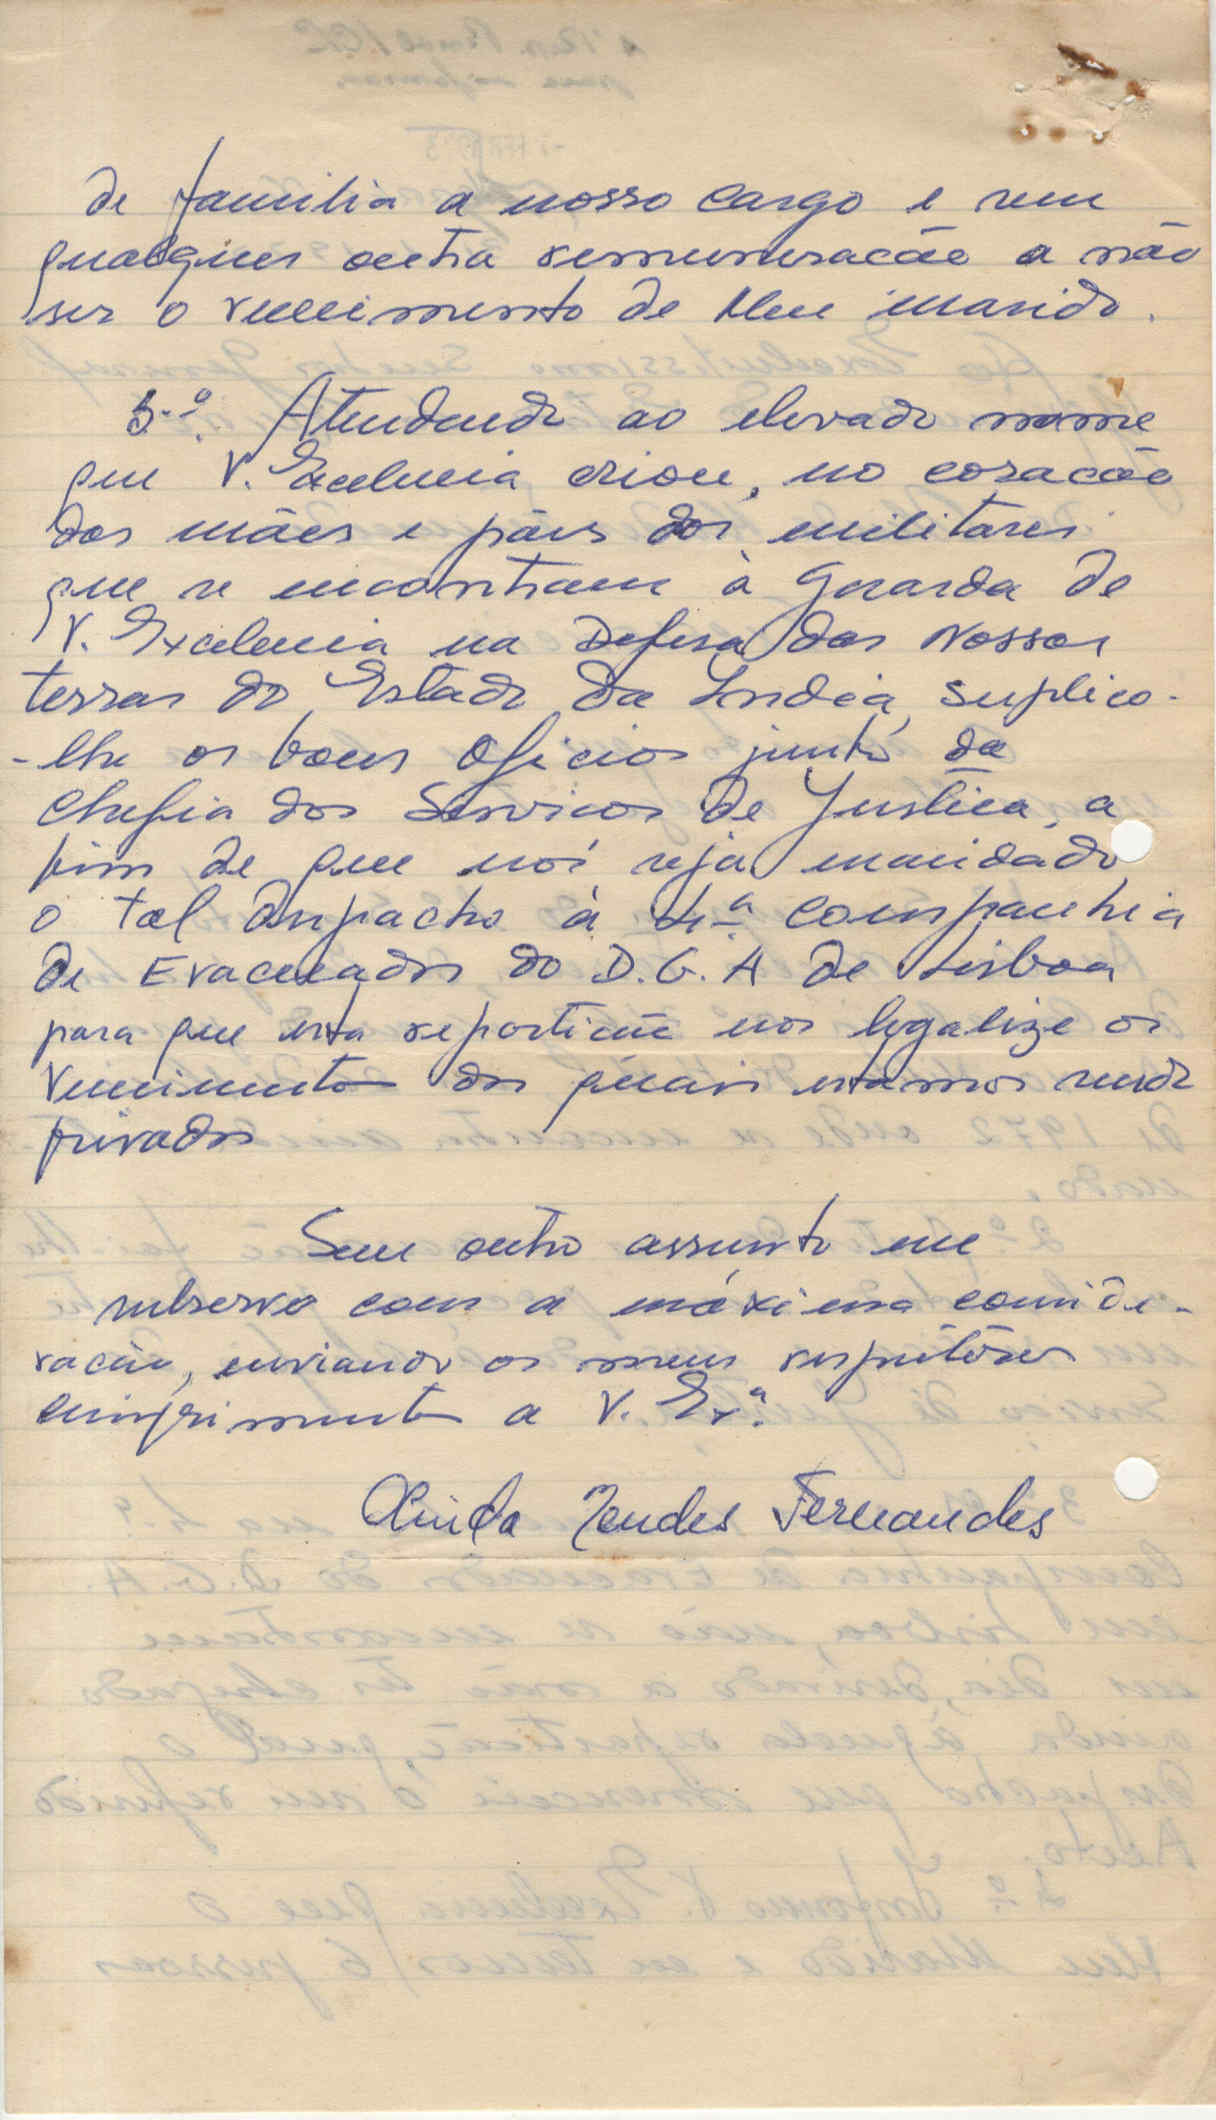 de familia a nosso cargo e sem
qualquer outra remuneracão a não
ser o vencimento de Meu marido.
5.º. Atendendo ao elevado nome
que V. Excelencia criou, no coracão
das mães e páis dos militares
que se encontram à Guarda de
V. Excelencia na Defesa das Nossas
terras do Estado da India, suplico-
-lhe os bons Oficios junto da
Chefia dos Servicos de Justica, a
fim de que nos seja mandado
o tal despacho à 4ª Companhia
de Evacuados do D.G.A de Lisboa
para que esta reparticão nos legalize os
Vencimentos dos quais estamos sendo
privados
Sem outro assunto me
subscrevo com a máxima conside-
racão, enviando os meus respeitósos
cumprimentos a V. Exª.
Olinda Mendes Fernandes